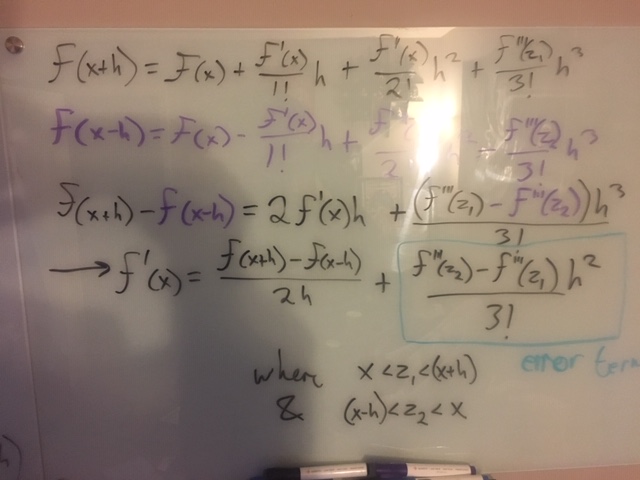 f(x+h) = f(x) + f'(x)/1! h + f''(x)/2! h² + f'''(z₁)/3! h³
f(x-h) = f(x) - f'(x)/1! h + f''/2 h² - f'''(z₂)/3! h³
f(x+h) - f(x-h) = 2f'(x)h + (f'''(z₁) - f'''(z₂))h³/3!
→ f'(x) = f(x+h) - f(x-h)/2h + f'''(z₂) - f'''(z₁)/3! h²
error term
where x < z₁ < (x+h)
& (x-h) < z₂ < x